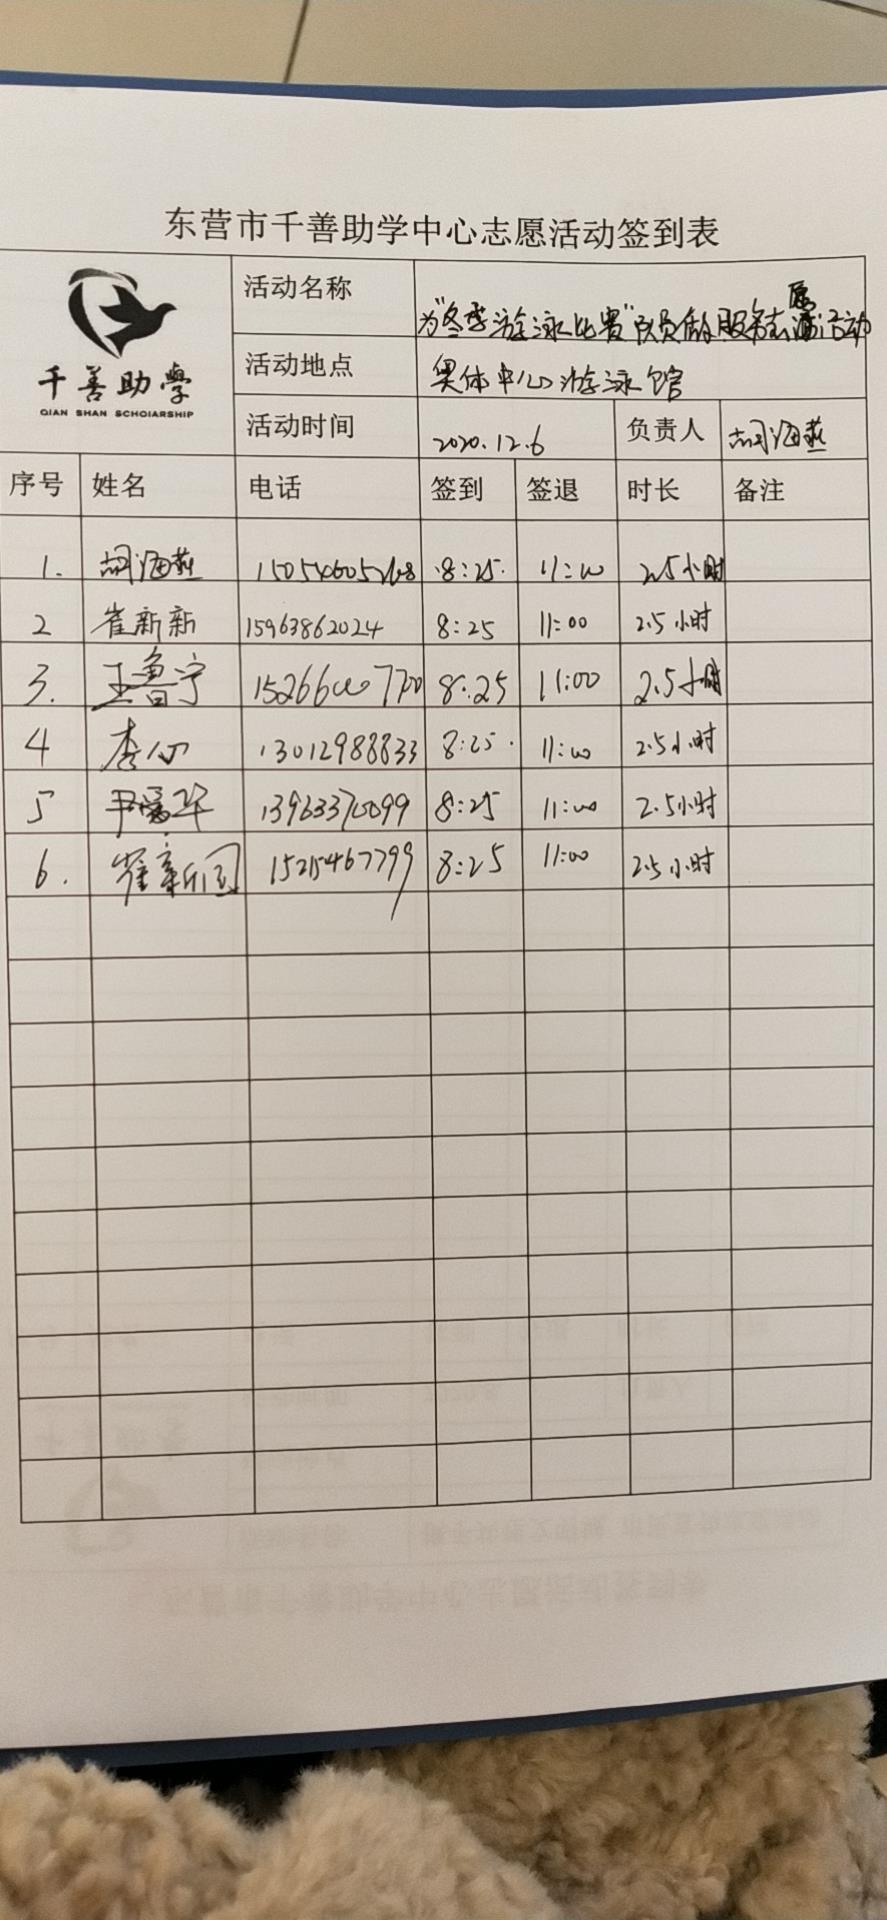 东营市千善助学中心志愿活动签到表
千善助學
QIAN SHAN SCHOLARSHIP
活动名称 为"冬季游泳比赛"队员做服务志愿活动
活动地点 奥体中心游泳馆
活动时间 2020.12.6 负责人 胡海燕
序号 姓名 电话 签到 签退 时长 备注
1. 胡海燕 8:25 11:00 2.5小时
2 崔新新 15963862024 8:25 11:00 2.5小时
3. 王鲁宁 15266007770 8:25 11:00 2.5小时
4 李心 13012988833 8:25 11:00 2.5小时
5 尹爱华 13963370099 8:25 11:00 2.5小时
6. 崔新国 15215467799 8:25 11:00 2.5小时